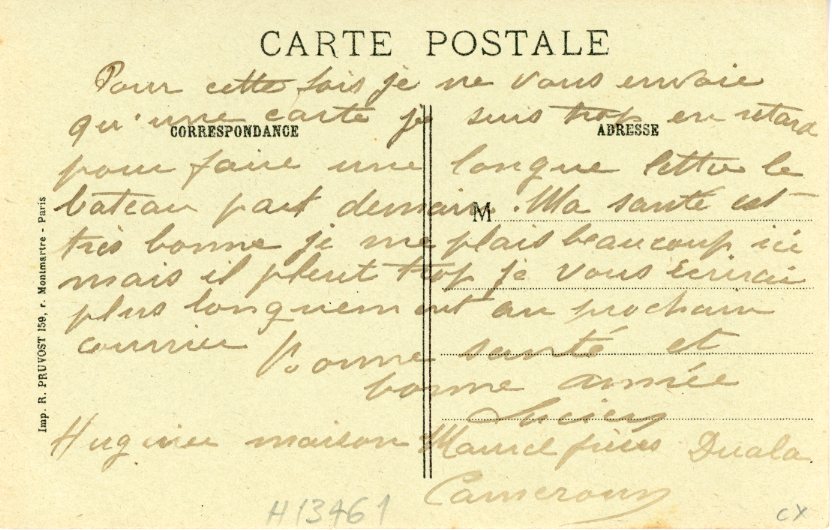 CARTE POSTALE
Pour cette fois je ne vous envoie
qu'une carte je suis trop en retard
CORRESPONDANCE
ADRESSE
pour faire une longue lettre le
bateau part demain. Ma santé est
M
très bonne je me plais beaucoup ici
mais il pleut trop je vous écrirai
plus longuement au prochain
courrier Bonne santé et
bonne année
Lucien
maison frères Duala
Cameroun
Imp. R. PRUVOST 159, r. Montmartre - Paris
H13461
CX